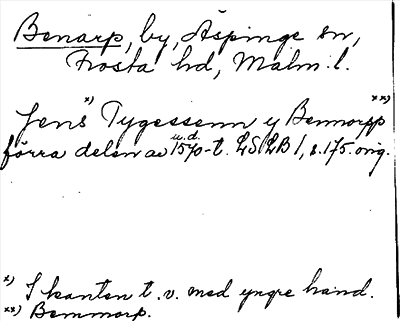 Benarp, by, Äspinge sn,
Frosta hd, Malm. l.
Jens x) Tygessenn y Bennorpp xx)
förra delen av u.d. 1570-t. LSLB 1, s. 175. orig.
x) I kanten t. v. med yngre hand.
xx) Bemmorp.